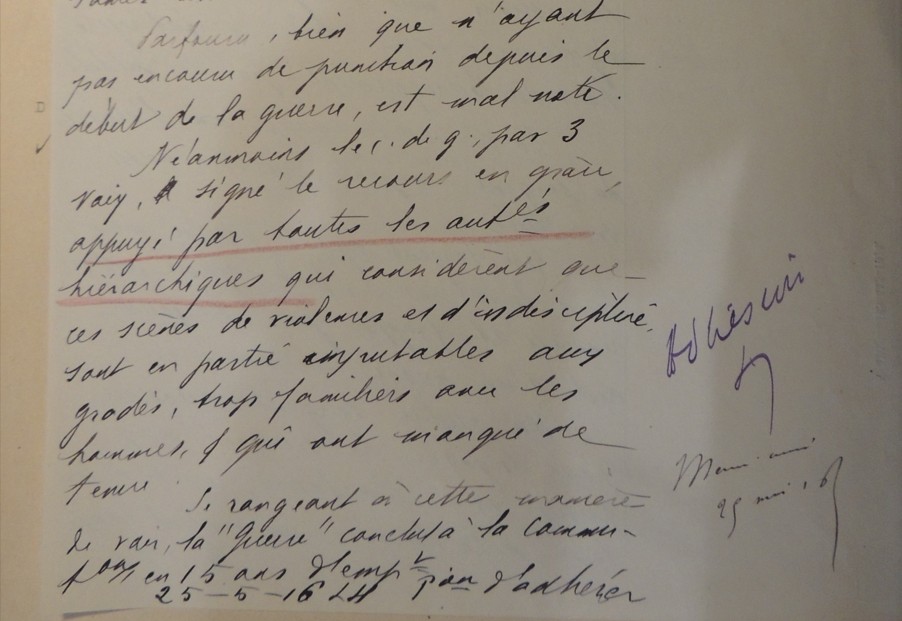 bien que n'ayant
pas encouru de punition depuis le
début de la guerre, est mal noté.
Néanmoins le c. de g., par 3
voix, a signé le recours en grâce,
appuyé par toutes les aut<sup>és</sup>
hiérarchiques qui considèrent que
ces scènes de violences et d'indiscipline,
sont en partie imputables aux
gradés, trop familiers avec les
hommes, & qui ont manqué de
tenue.
Se rangeant à cette manière
de voir, la "Guerre" conclut à la commu-
t<sup>on</sup> en 15 ans d'emp<sup>t</sup> d'adhérer
25-5-16
Adhésion
25 mai 16